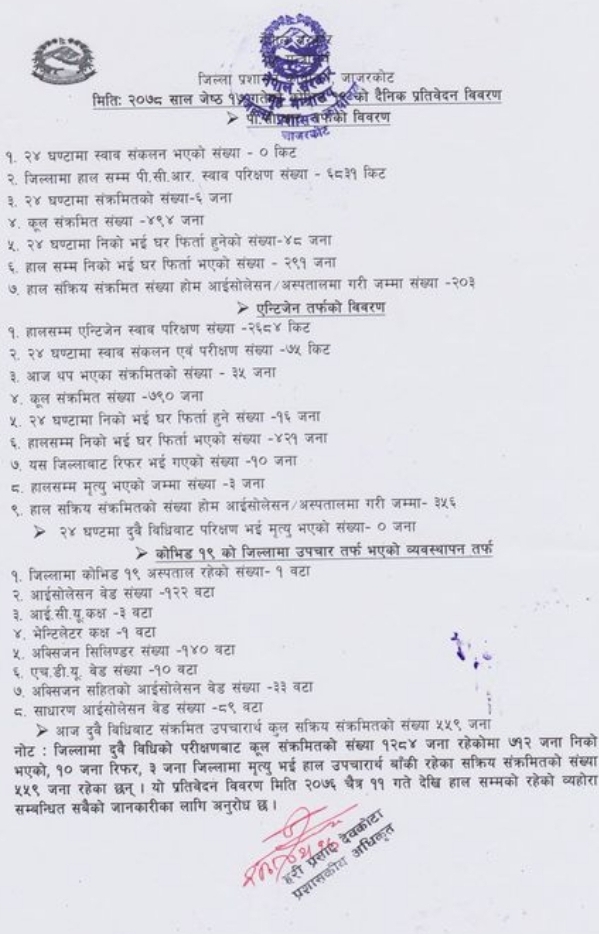 नेपाल सरकार
गृह मन्त्रालय
जिल्ला प्रशासन कार्यालय, जाजरकोट
मितिः २०७८ साल जेष्ठ को दैनिक प्रतिवेदन विवरण
➤ तर्फको विवरण
१. २४ घण्टामा स्वाव संकलन भएको संख्या - ० किट
२. जिल्लामा हाल सम्म पी.सी.आर. स्वाव परिक्षण संख्या - ६८३१ किट
३. २४ घण्टामा संक्रमितको संख्या-६ जना
४. कूल संक्रमित संख्या -४९४ जना
५. २४ घण्टामा निको भई घर फिर्ता हुनेको संख्या-४८ जना
६. हाल सम्म निको भई घर फिर्ता भएको संख्या - २९१ जना
७. हाल सक्रिय संक्रमित संख्या होम आईसोलेसन/अस्पतालमा गरी जम्मा संख्या -२०३
➤ एन्टिजेन तर्फको विवरण
१. हालसम्म एन्टिजेन स्वाव परिक्षण संख्या -२६८४ किट
२. २४ घण्टामा स्वाव संकलन एवं परीक्षण संख्या -७५ किट
३. आज थप भएका संक्रमितको संख्या - ३५ जना
४. कूल संक्रमित संख्या -७९० जना
५. २४ घण्टामा निको भई घर फिर्ता हुने संख्या -१६ जना
६. हालसम्म निको भई घर फिर्ता भएको संख्या -४२१ जना
७. यस जिल्लाबाट रिफर भई गएको संख्या -१० जना
८. हालसम्म मृत्यु भएको जम्मा संख्या -३ जना
९. हाल सक्रिय संक्रमितको संख्या होम आईसोलेसन/अस्पतालमा गरी जम्मा- ३५६
➤ २४ घण्टमा दुवै विधिवाट परिक्षण भई मृत्यु भएको संख्या- ० जना
➤ कोभिड १९ को जिल्लामा उपचार तर्फ भएको व्यवस्थापन तर्फ
१. जिल्लामा कोभिड १९ अस्पताल रहेको संख्या- १ वटा
२. आईसोलेसन वेड संख्या -१२२ वटा
३. आई.सी.यू.कक्ष -३ वटा
४. भेन्टिलेटर कक्ष -१ वटा
५. अक्सिजन सिलिण्डर संख्या -१४० वटा
६. एच.डी.यू. वेड संख्या -१० वटा
७. अक्सिजन सहितको आईसोलेसन वेड संख्या -३३ वटा
८. साधारण आईसोलेसन वेड संख्या -८९ वटा
➤ आज दुवै विधिबाट संक्रमित उपचारार्थ कुल सक्रिय संक्रमितको संख्या ५५९ जना
नोट : जिल्लामा दुवै विधिको परीक्षणबाट कूल संक्रमितको संख्या १२८४ जना रहेकोमा ७१२ जना निको
भएको, १० जना रिफर, ३ जना जिल्लामा मृत्यु भई हाल उपचारार्थ बाँकी रहेका सक्रिय संक्रमितको संख्या
५५९ जना रहेका छन् । यो प्रतिवेदन विवरण मिति २०७६ चैत्र ११ गते देखि हाल सम्मको रहेको व्यहोरा
सम्बन्धित सबैको जानकारीका लागि अनुरोध छ ।
हरी प्रसाद देवकोटा
प्रशासकीय अधिकृत